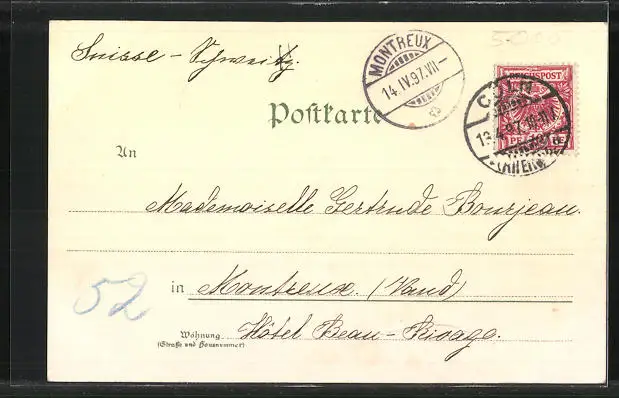 Suisse – Schweitz.
MONTREUX
14.IV.97.VII–
REICHSPOST
CÖLN
Postkarte
An
Mademoiselle Gertrude Bourjeau.
in Montreux. (Vaud)
52
Wohnung
(Straße und Hausnummer)
Hôtel Beau-Rivage.